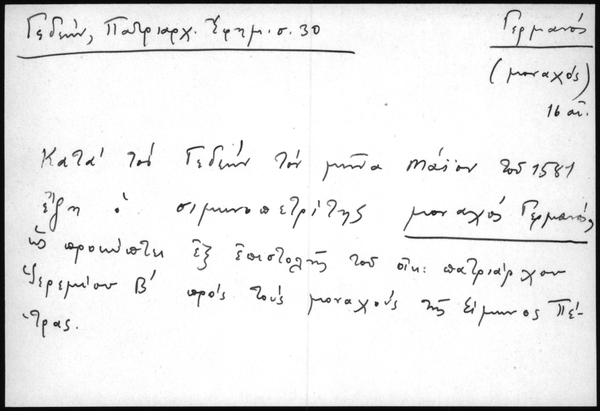 Γεδεών, Πατριαρχ. Ἐφημ. σ. 30
Γερμανός
(μοναχός)
16 αἰ.
Κατά τόν Γεδεών τόν μῆνα Μάϊον τοῦ 1581
ἔζη ὁ σιμωνοπετρίτης μοναχός Γερμανός,
ὡς προκύπτει ἐξ ἐπιστολῆς τοῦ οἰκ: πατριάρχου
Ἱερεμίου Β΄ πρός τούς μοναχούς τῆς Σίμωνος Πέ-
τρας.